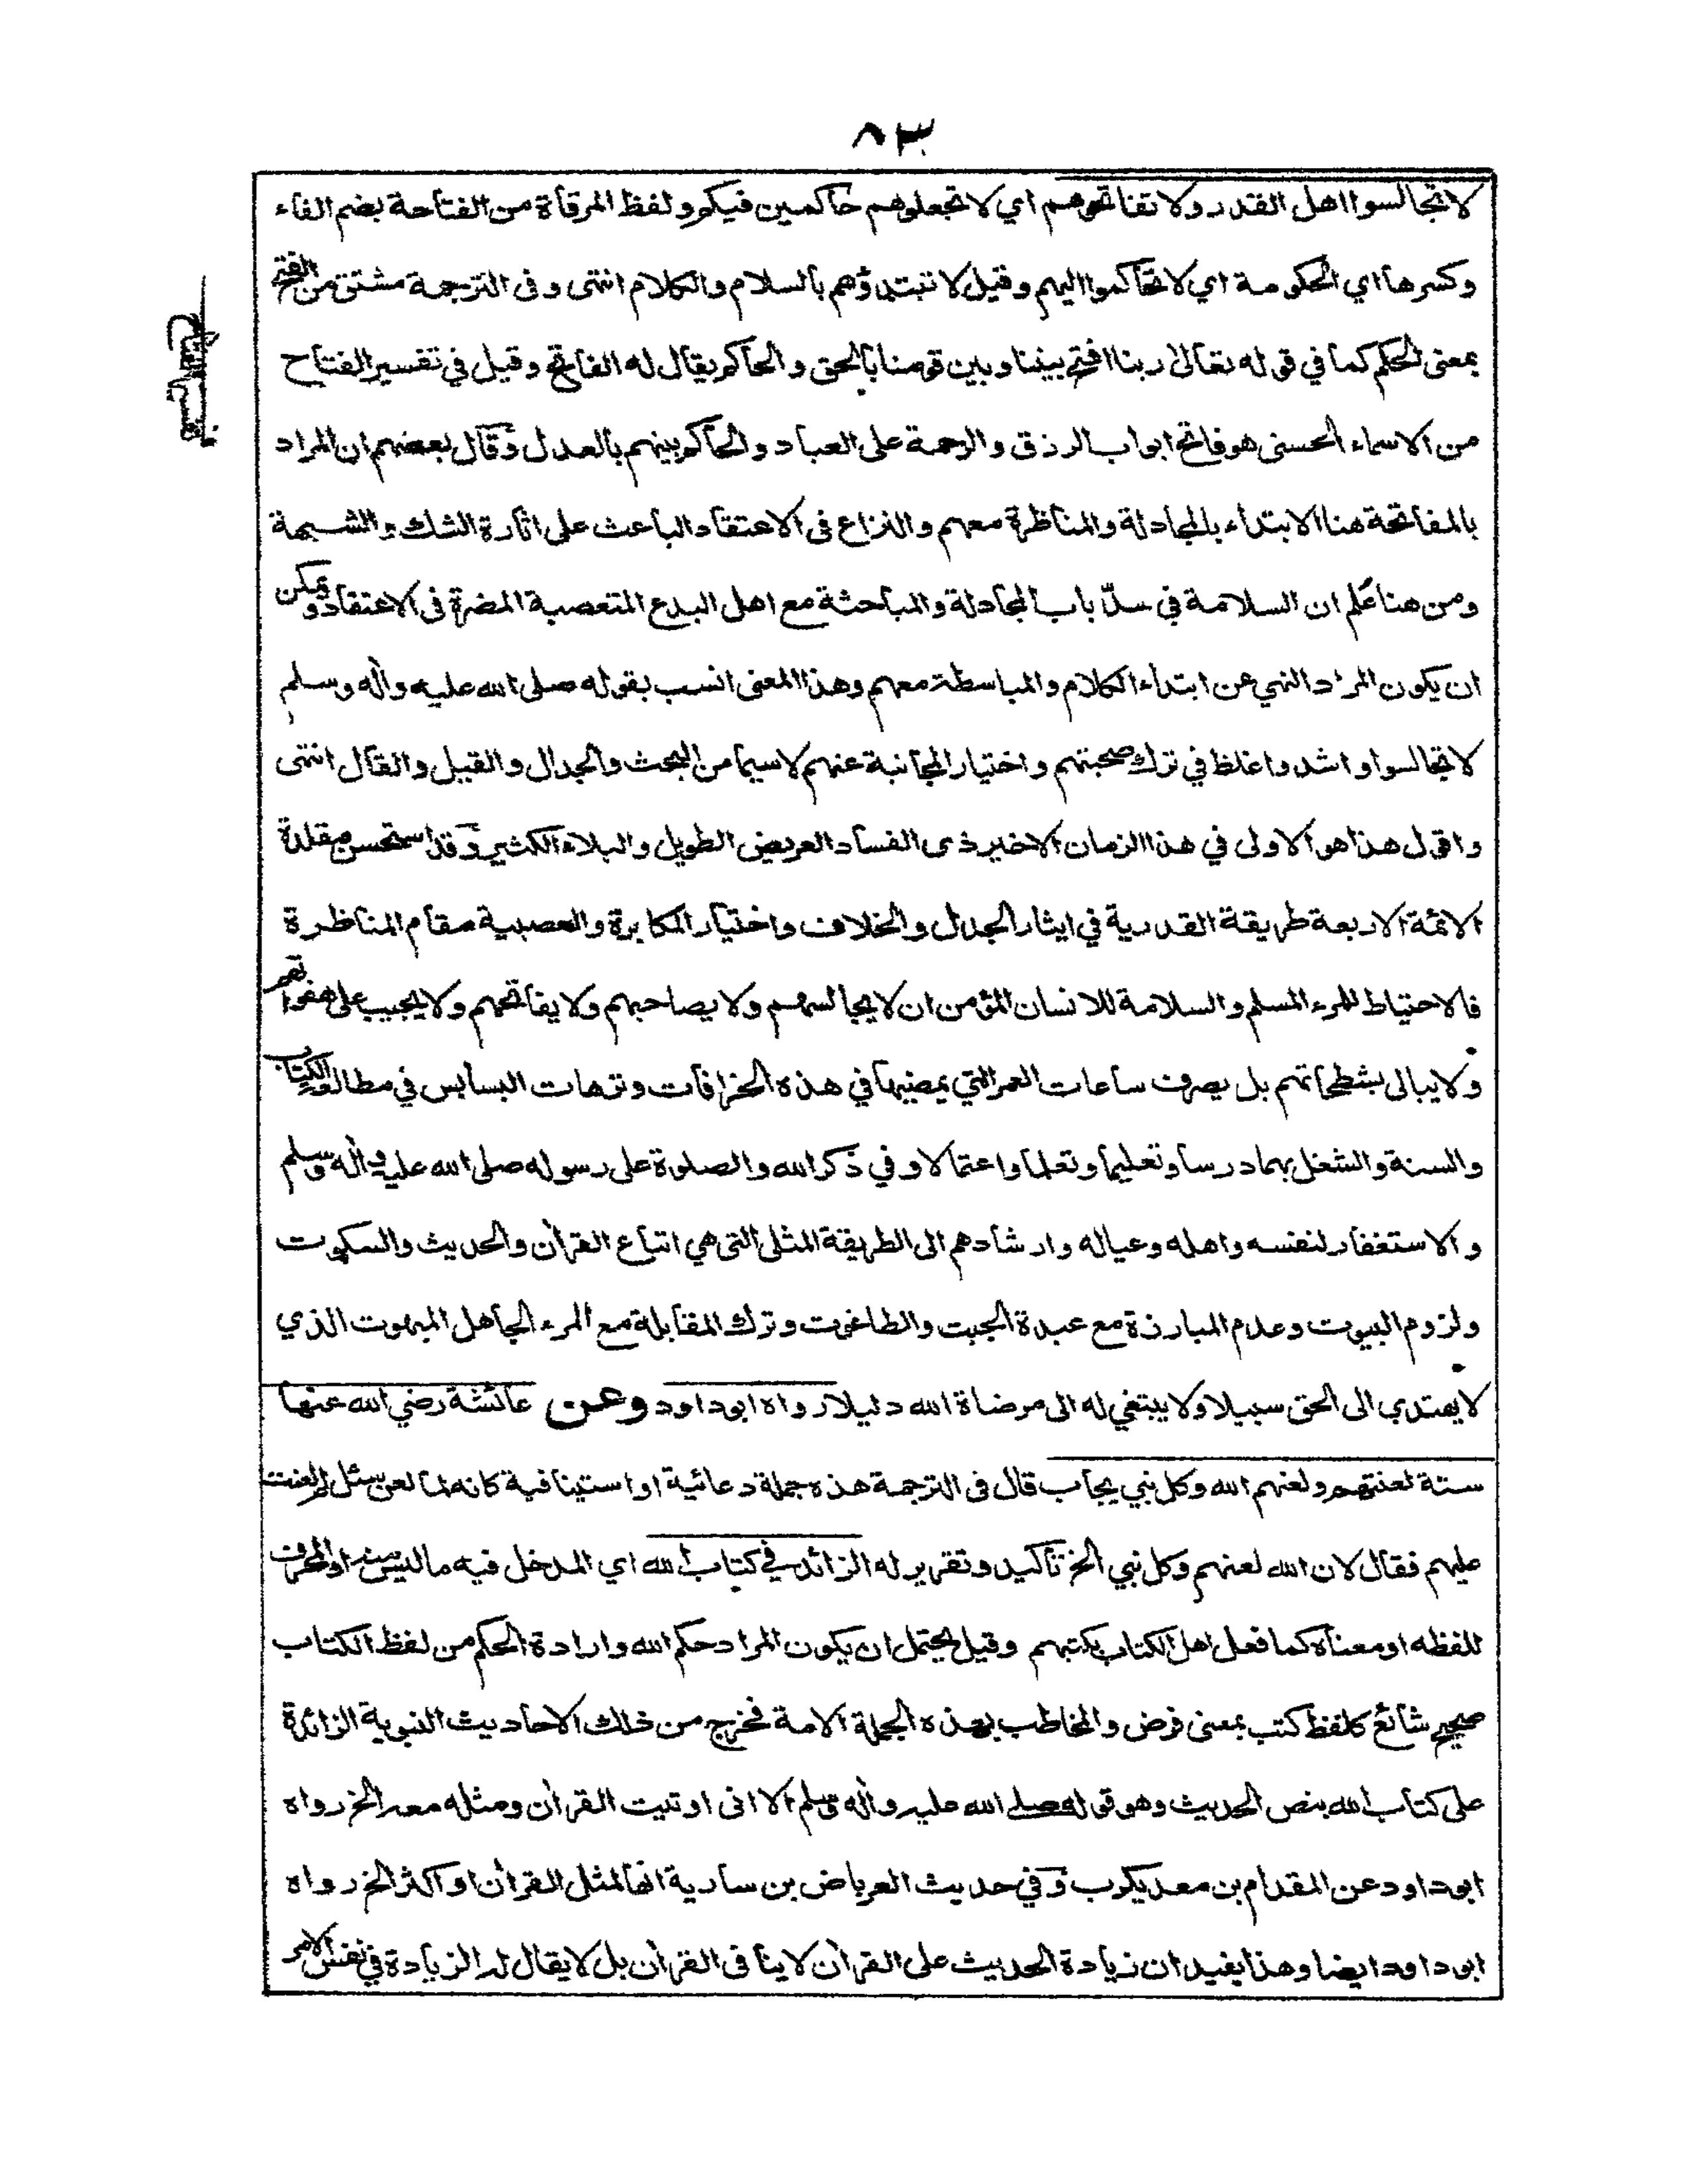 ٨٣
لا تجالسوا اهل القدر ولا تفاتحوهم اي لا تجعلوهم حاكمين فيكم ولفظ المرقاة من الفتاحة بضم الفاء
وكسرها اي الحكومة اي لا تحاكموا اليهم وقيل لا تبتدؤهم بالسلام والكلام انتهى وفى الترجمة مشتق من الفتح
تفسير الفتاح
بمعنى الحكم كما في قوله تعالى ربنا افتح بيننا وبين قومنا بالحق والحاكم يقال له الفاتح وقيل في تفسير الفتاح
من الاسماء الحسنى هو فاتح ابواب الرزق والرحمة على العباد والحاكم بينهم بالعدل وقال بعضهم ان المراد
بالمفاتحة هنا الابتداء بالمجادلة والمناظرة معهم والنزاع فى الاعتقاد الباعث على اثارة الشك والشبهة
ومن هنا علم ان السلامة في سدّ باب المجادلة والمباحثة مع اهل البدع المتعصبة المضرة فى الاعتقاد ويمكن
ان يكون المراد النهي عن ابتداء الكلام والمباسطة معهم وهذا المعنى انسب بقوله صلى الله عليه واٰله وسلم
لا تجالسوا واشد واغلظ في ترك صحبتهم واختيار المجانبة عنهم لاسيما من البحث والجدال والقيل والقال انتهى
واقول هذا هو الاولى في هذا الزمان الاخير ذى الفساد العريض الطويل والبلاء الكثير وقد استحسن مقلدة
الائمة الاربعة طريقة القدرية في ايثار الجدل والخلاف واختيار المكابرة والعصبية مقام المناظرة
فالاحتياط للمرء المسلم والسلامة للانسان المؤمن ان لا يجالسهم ولا يصاحبهم ولا يفاتحهم ولا يجيب على هفواتهم
ولا يبالى بشطحاتهم بل يصرف ساعات العمر التي يمضيها في هذه الخرافات وترهات البسابس في مطالعة الكتاب
والسنة والشغل بهما درسا وتعليما وتعلما واعتمالا وفي ذكر الله والصلوة على رسوله صلى الله عليه واٰله وسلم
والاستغفار لنفسه واهله وعياله وارشادهم الى الطريقة المثلى التى هي اتباع القراٰن والحديث والسكوت
ولزوم البيوت وعدم المبارزة مع عبدة الجبت والطاغوت وترك المقابلة مع المرء الجاهل المبهوت الذي
لا يهتدي الى الحق سبيلا ولا يبتغي له الى مرضاة الله دليلا رواه ابوداود وعن عائشة رضي الله عنها
ستة لعنتهم ولعنهم الله وكل نبي يجاب قال فى الترجمة هذه جملة دعائية او استينافية كانه لما لعن سئل لم لعنت
عليهم فقال لان الله لعنهم وكل نبي الخ تاكيد وتقرير له الزائد في كتاب الله اي المدخل فيه ما ليس منه او المحرف
للفظه او معناه كما فعل اهل الكتاب بكتبهم وقيل يحتمل ان يكون المراد حكم الله وارادة الحكم من لفظ الكتاب
صحيح شائع كلفظ كتب بمعنى فرض والمخاطب بهذه الجملة الامة فخرج من ذلك الاحاديث النبوية الزائدة
على كتاب الله بنص الحديث وهو قوله صلى الله عليه واٰله وسلم الا انى اوتيت القراٰن ومثله معه الخ رواه
ابوداود عن المقدام بن معديكرب وفي حديث العرباض بن سارية انها لمثل القراٰن او اكثر الخ رواه
ابوداود ايضا وهذا يفيد ان زيادة الحديث على القراٰن لا ينافى القراٰن بل لا يقال له الزيادة في نفس الامر